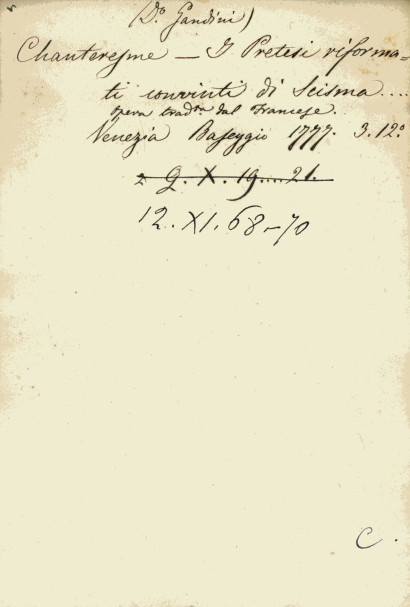 (Do. Gandini)
Chanteresme — I Pretesi riforma=
ti convinti di Scisma....
opera trad.ta dal Francese.
Venezia Baseggio 1777. 3. 12.o
2 G. X. 19....21.
12. XI. 68-70
C.